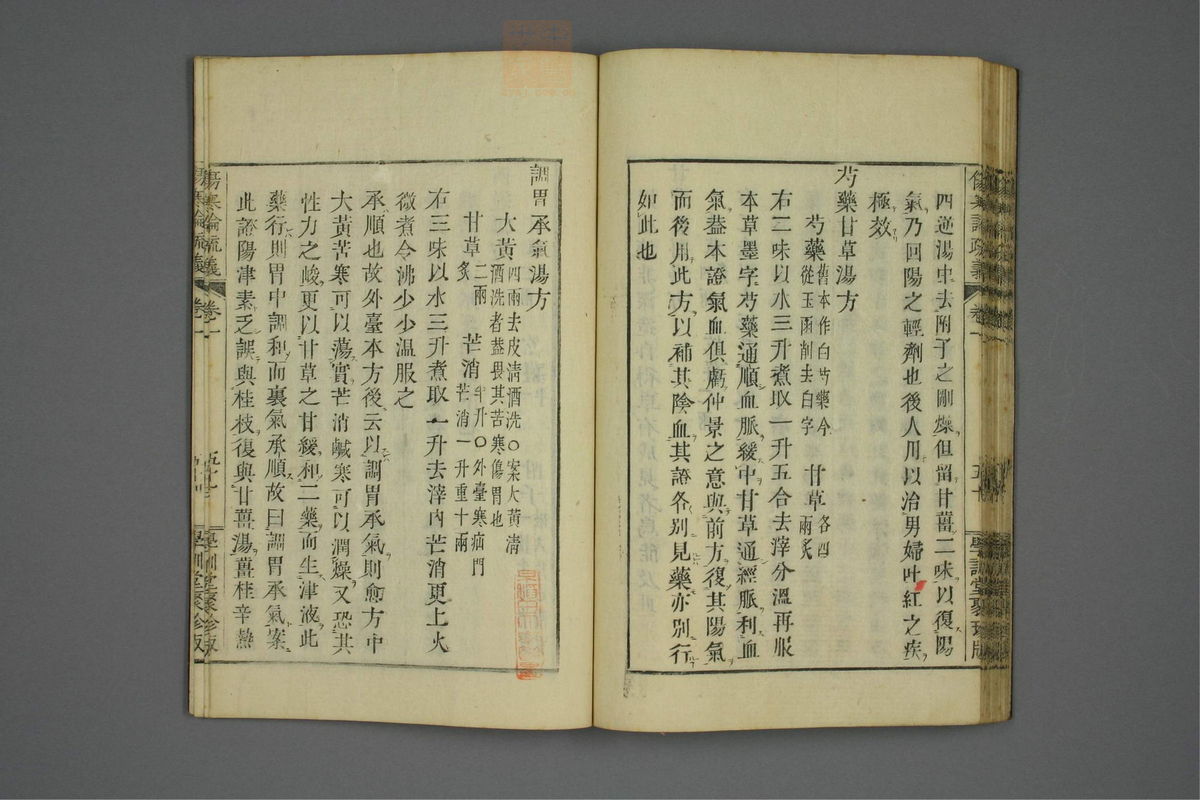 四逆湯中去附子之剛燥但留甘薑二味以復陽
氣乃回陽之輕劑也後人用以治男婦吐紅之疾
極效
芍藥甘草湯方
芍藥舊本作白芍藥今從玉函削去白字 甘草各四兩炙
右二味以水三升煮取一升五合去滓分溫再服
本草墨字芍藥通順血脈緩中甘草通經脈利血
氣葢本證氣血俱虧仲景之意與前方復其陽氣
而後用此方以補其陰血其證各別見藥亦別行
如此也
調胃承氣湯方
大黃四兩去皮清酒洗○案大黃清酒洗者葢畏其苦寒傷胃也
甘草二兩炙 芒消半升○外臺寒疝門芒消一升重十兩
右三味以水三升煮取一升去滓內芒消更上火
微煮令沸少少溫服之
承順也故外臺本方後云以調胃承氣則愈方中
大黃苦寒可以蕩實芒消鹹寒可以潤燥又恐其
性力之峻更以甘草之甘緩和二藥而生津液此
藥行則胃中調和而裏氣承順故曰調胃承氣案
此證陽津素乏誤與桂枝復與甘薑湯薑桂辛熱
傷寒論疏義 卷一
學訓堂聚珍版